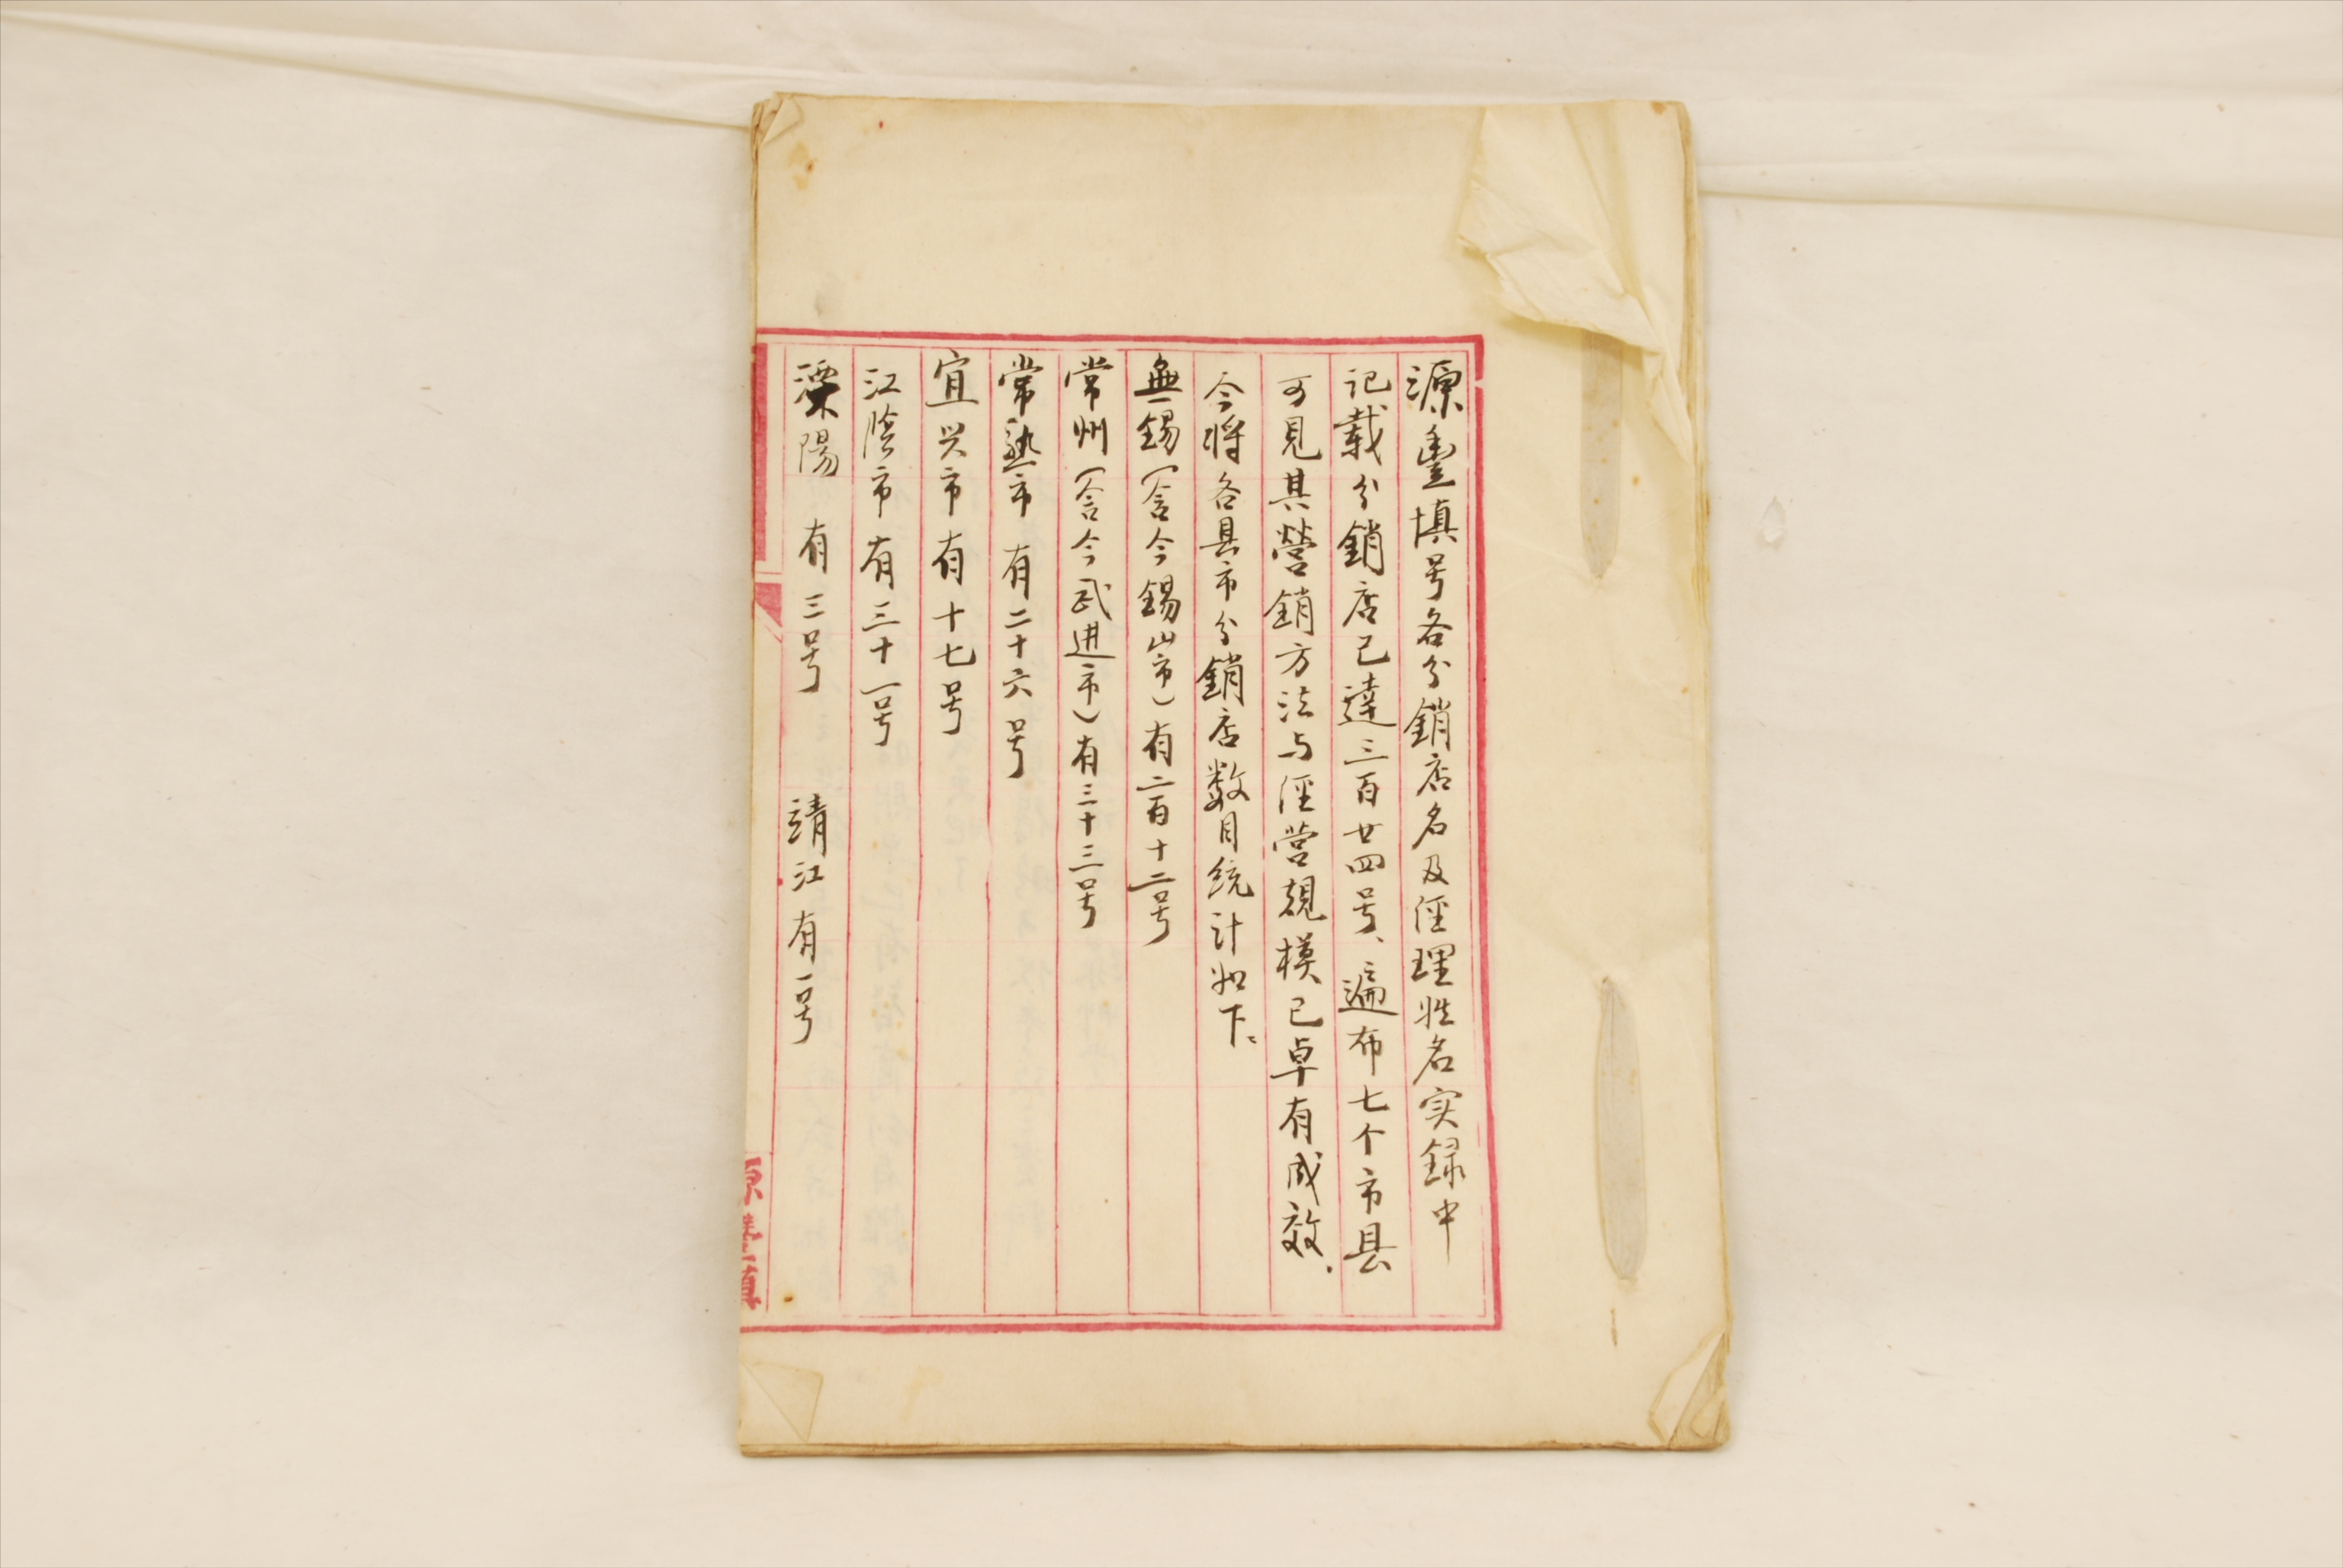 源豊填号各分銷店名及经理姓名实録中
记载分銷店已達三百廿四号、遍布七个市县
可見其營銷方法与经营規模已卓有成效.
今将各县市分銷店数目统计如下:
無錫(含今錫山市)有二百十二号
常州(含今武进市)有三十三号
常熟市 有二十六号
宜兴市有十七号
江陰市有三十一号
溧陽 有三号 靖江有一号